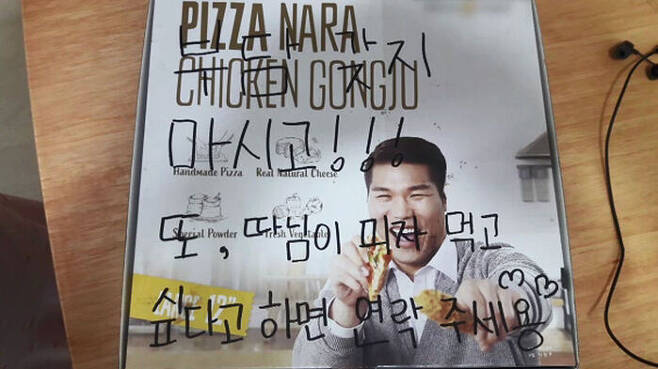 PIZZA NARA
부담 갖지
CHICKEN GONGJU
마시고!!!
Handmade Pizza Real Natural Cheese
또, 따님이 피자 먹고
Special Powder Fresh Vegetable
싶다고 하면 연락 주세용
LARGE 13"